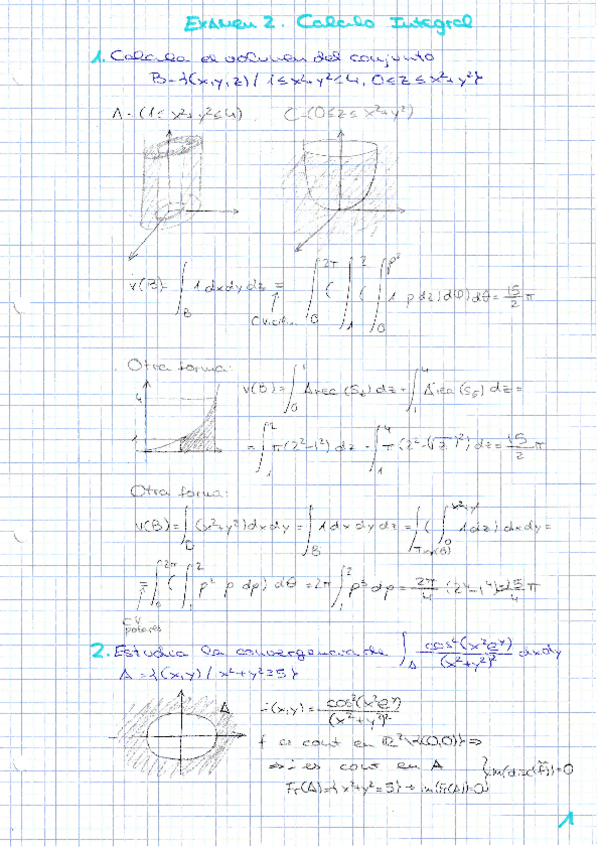 Examen 2. Calculo Integral
1. Calcula el volumen del conjunto
B={(x,y,z)/ 1≤x²+y²≤4, 0≤z≤x²+y²}
A=(1≤x²+y²≤4) C=(0≤z≤x²+y²)
v(B)=∫_B 1dxdydz = ∫_0^{2π}(∫_1^2(∫_0^{ρ²} 1 ρdz)dρ)dθ=15/2 π
Otra forma:
4
1
v(B)=∫_0^1 Area(S_z)dz+∫_1^4 Area(S_z)dz=
π(2²-1²)dz ∫_1^4 π(2²-(√z)²)dz=15/2 π
Otra forma:
v(B)=∫_D(x²+y²)dxdy=∫_B 1dxdydz=∫(∫_0^{x²+y²}1dz)dxdy=
=∫_0^{2π}(∫_1^2 ρ² ρdρ)dθ=2π∫_1^2 ρ³dρ=2π/4(2⁴-1⁴)=15/4 π
CV
polares
2. Estudia la convergencia de ∫_A cos²(x²e^y)/(x²+y²)² dxdy
A={(x,y)/x²+y²≥5}
A
f(x,y)=cos²(x²e^y)/(x²+y²)²
f es cont en R²\{(0,0)}⇒
⇒f es cont en A
Fr(A)={x²+y²=5}→m(Fr(A))=0
1